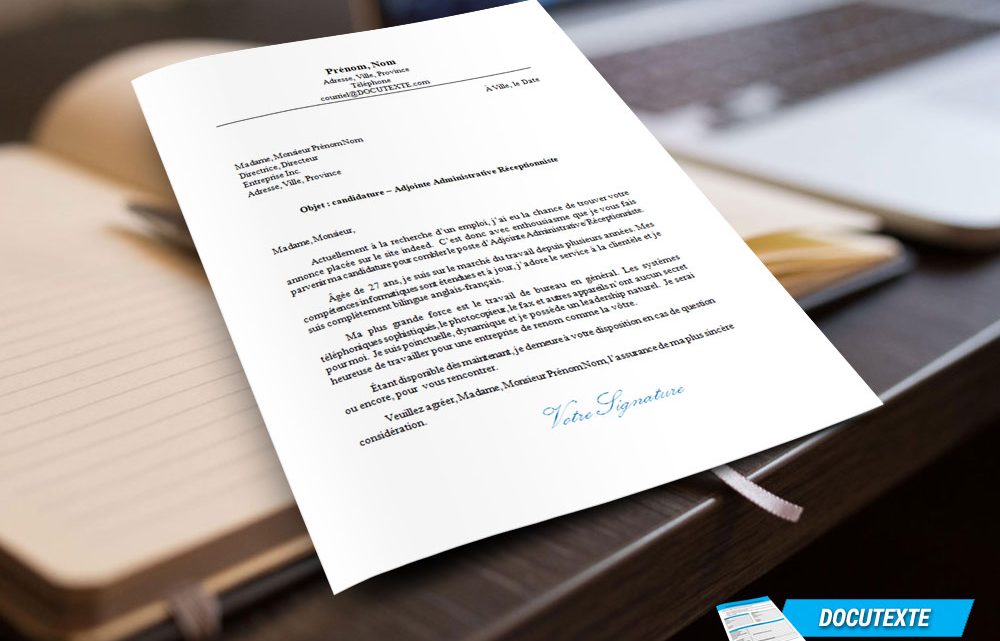 Prénom, Nom
Adresse, Ville, Province
Téléphone
courriel@DOCUTEXTE.com
À Ville, le Date
Madame, Monsieur Prénom Nom
Directrice, Directeur
Entreprise Inc.
Adresse, Ville, Province
Objet : candidature – Adjointe Administrative Réceptionniste
Madame, Monsieur,
Actuellement à la recherche d'un emploi, j'ai eu la chance de trouver votre
annonce placée sur le site indeed. C'est donc avec enthousiasme que je vous fais
parvenir ma candidature pour combler le poste d'Adjointe Administrative Réceptionniste.
Âgée de 27 ans, je suis sur le marché du travail depuis plusieurs années. Mes
compétences informatiques sont étendues et à jour, j'adore le service à la clientèle et je
suis complètement bilingue anglais-français.
Ma plus grande force est le travail de bureau en général. Les systèmes
téléphoniques sophistiqués, le photocopieur, le fax et autres appareils n'ont aucun secret
pour moi. Je suis ponctuelle, dynamique et je possède un leadership naturel. Je serai
heureuse de travailler pour une entreprise de renom comme la vôtre.
Étant disponible dès maintenant, je demeure à votre disposition en cas de question
ou encore, pour vous rencontrer.
Veuillez agréer, Madame, Monsieur Prénom Nom, l'assurance de ma plus sincère
considération.
Votre Signature
DOCUTEXTE